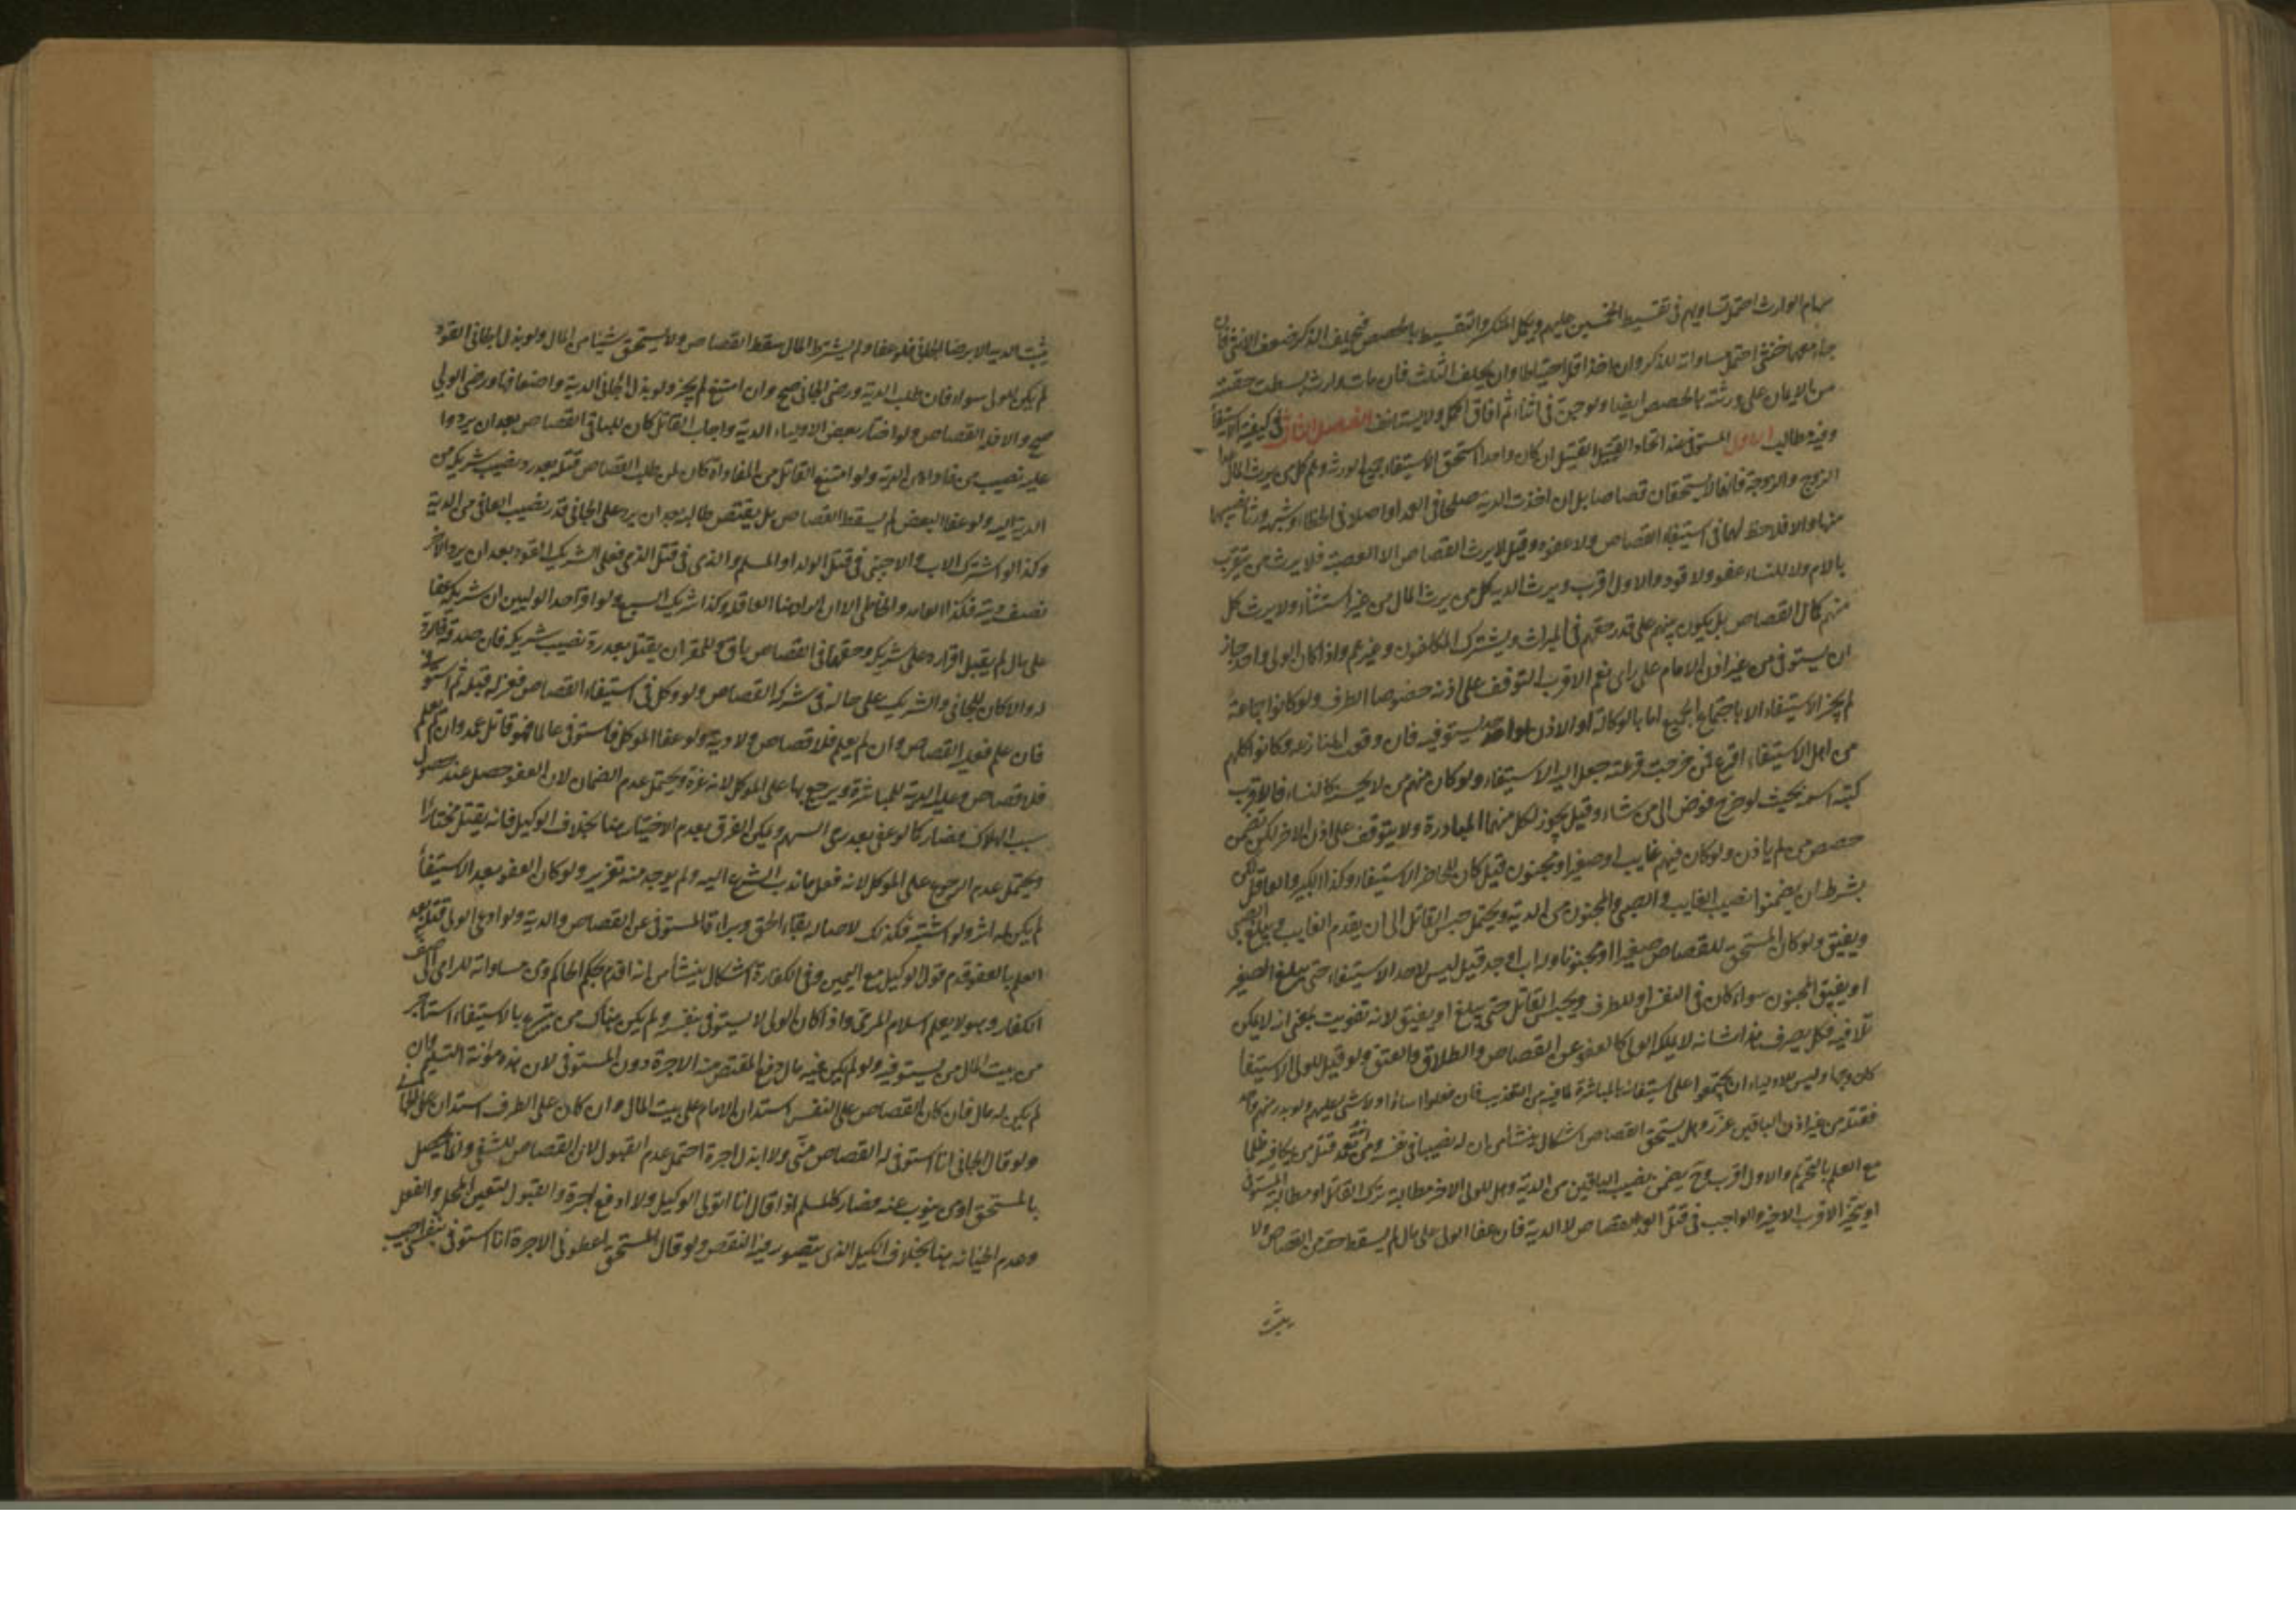 سهام الوارث احتمل تساويهم في تقسيط الخمسين عليهم ويكمل المنكسر والتقسيط بالحصص فيحلف الذكر ضعف الانثى فان
جاء معهما خنثى احتمل مساواته للذكر وان اخذ اقل احتياطا وان يحلف الثلث فان مات وارث بسطت حقته
من الايمان على ورثته بالحصص ايضا ولو جن في اثناء ثم افاق اكمل ولا يستانف الفصل الثالث في كيفية الاستيفا
وفيه مطالب الاول المستوفي عند اتحاد القتيل القتيل ان كان واحدا استحق الاستيفاء جميع الورثة وهم كل من يرث المال عدا
الزوج والزوجة فانهما لا يستحقان قصاصا بل ان اخذت الدية صلحا في العمد او اصلا في الخطاء وشبهه ورثا نصيبهما
منها والا فلا حظ لهما في استيفاء القصاص ولا عفوه وقيل لا يرث القصاص الا العصبة فلا يرث من يتقرب
بالام ولا للنساء عفو ولا قود والاول اقرب ويرث الدية كل من يرث المال من غير استثناء ولا يرث كل
منهم كمال القصاص بل يكون بينهم على قدر حقهم في الميراث ويشترك المكلفون وغيرهم واذا كان الولي واحد جاز
ان يستوفي من غير اذن الامام على راى نعم الاقرب التوقف على اذنه خصوصا الطرف ولو كانوا جماعة
لم يجز الاستيفاء الا باجتماع الجميع اما بالوكالة او الاذن لواحد يستوفيه فان وقعت المنازعة وكانوا كلهم
من اهل الاستيفاء اقرع فمن خرجت قرعته جعل اليه الاستيفاء ولو كان منهم من لا يحسن كالنساء فالاقرب
كتبة اسمه بحيث لو خرج فوض الى من شاء وقيل يجوز لكل منهما المبادرة ولا يتوقف على اذن الاخر لكن يضمن
حصص من لم ياذن ولو كان فيهم غايب او صغير او مجنون قيل كان للحاضر الاستيفاء وكذا الكبير والعاقل لكن
بشرط ان يضمنوا نصيب الغايب والصبي والمجنون من الدية ويحتمل حبس القاتل الى ان يقدم الغايب ويبلغ الصبي
ويفيق ولو كان المستحق للقصاص صغيرا او مجنونا وله اب او جد قيل ليس لاحد الاستيفاء حتى يبلغ الصغير
او يفيق المجنون سواء كان في النفس او للطرف ويحبس القاتل حتى يبلغ او يفيق لانه تفويت بمعنى انه لا يمكن
تلافيه فكل تصرف هذا شانه لا يملكه الولي كالعفو عن القصاص والطلاق والعتق ولو قيل للولي الاستيفا
كان وجها وليس للاولياء ان يجتمعوا على استيفائه بالمباشرة لما فيه من التعذيب فان فعلوا اساؤا ولا شئ عليهم ولو بدر منهم واحد
فقتله من غير اذن الباقين عزر وهل يستحق القصاص اشكال ينشأ من ان له نصيبا في نفسه ومن انه تعمد قتل من يكافيه ظلما
مع العلم بالتحريم والاول اقرب وح يضمن نصيب الباقين من الدية وهل للولي الاخر مطالبة تركة القاتل او مطالبة المستوفي
او يتخير الاقرب الاخير والواجب في قتل العمد القصاص لا الدية فان عفا الولي على مال لم يسقط حقه من القصاص ولا
يثبت
يثبت الدية الا برضا الجاني فلو عفا ولم يشترط المال سقط القصاص ولا يستحق شيئا من المال ولو بذل الجاني القود
لم يكن للولي سواه فان طلب الدية ورضى الجاني صح وان امتنع لم يجز ولو بذل الجاني الدية واضعافها ورضى الولي
صح والا فله القصاص ولو اختار بعض الاولياء الدية واجاب القاتل كان للباقي القصاص بعد ان يردوا
عليه نصيب من فاداه من الدية ولو امتنع القاتل من المفاداة كان لمن طلب القصاص قتله بعد رد نصيب شريكه من
الدية اليه ولو عفا البعض لم يسقط القصاص بل يقتص طالبه بعد ان يرد على الجاني قدر نصيب العافي من الدية
وكذا لو اشترك الاب والاجنبي في قتل الولد او المسلم والذمي في قتل الذمي فعلى الشريك القود بعد ان يرد الاخر
نصف ديته فكذا العامد والخاطى الا ان الراد هنا العاقلة وكذا شريك السبع ولو اقر احد الوليين ان شريكه عفا
على مال لم يقبل اقراره على شريكه وحقهما في القصاص باق وللمقر ان يقتل بعد رد نصيب شريكه فان صدقه فالرد
له والا كان للجاني والشريك على حاله في شركة القصاص ولو وكل في استيفاء القصاص فعزله قبله ثم استوفى
فان علم فعليه القصاص وان لم يعلم فلا قصاص ولا دية ولو عفا الموكل فاستوفى عالما فهو قاتل عمد وان لم يعلم
فلا قصاص وعليه الدية للمباشرة ويرجع بها على الموكل لانه غره ويحتمل عدم الضمان لان العفو حصل عند حصول
سبب الهلاك فصار كما لو عفى بعد رمى السهم ويمكن الفرق بعدم الاختيار هنا بخلاف الوكيل فانه يقتل مختارا
ويحتمل عدم الرجوع على الموكل لانه فعل ما ندب الشرع اليه ولم يوجد منه تغرير ولو كان العفو بعد الاستيفا
لم يكن له اثر ولو اشتبه فكذلك لاصالة بقاء الحق وبراءة المستوفي عن القصاص والدية ولو ادعى الولي قتله بعد
العلم بالعفو قدم قول الوكيل مع اليمين وفي الكفارة اشكال ينشأ من انه اقدم بحكم الحاكم ومن مساواته للرامي الى صف
الكفار وهو لا يعلم اسلام المرمى واذا كان الولي لا يستوفي بنفسه ولم يكن هناك من يتبرع بالاستيفاء استاجر
من بيت المال من يستوفيه ولو لم يكن فيه مال دفع المقتص منه الاجرة دون المستوفي لان هذه مؤنة التسليم وان
لم يكن له مال فان كان القصاص على النفس استدان الامام على بيت المال وان كان على الطرف استدان على الجاني
ولو قال الجاني انا استوفي له القصاص مني ولا ابذل اجرة احتمل عدم القبول لان القصاص للتشفي وانما يحصل
بالمستحق او من ينوب عنه فصار كالمسلم اذا قال انا اتولى الوكيل ولا ادفع اجرة والقبول لتعين المحل والفعل
وعدم الخيانة هنا بخلاف الكيل الذي يتصور فيه النقص ولو قال المستحق اعطوني الاجرة انا استوفي بنفسي اجيب